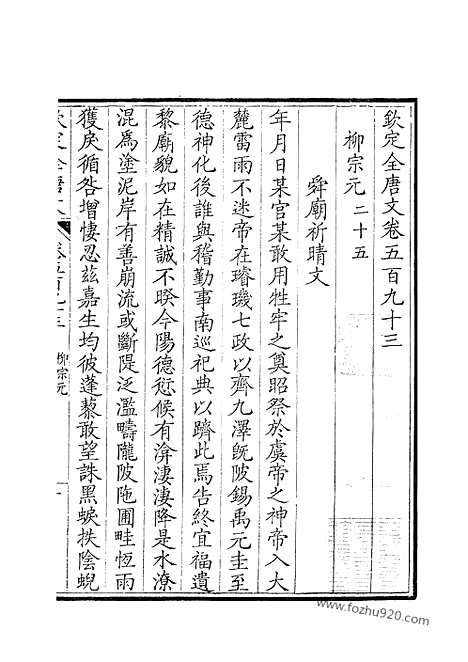 欽定全唐文卷五百九十三
柳宗元二十五
舜廟祈晴文
年月日某官某敢用牲牢之奠昭祭於虞帝之神帝入大
麓雷雨不迷帝在璿璣七政以齊九澤既陂錫禹元圭至
德神化後誰與稽勤事南巡祀典以躋此焉告終宜福遺
黎廟貌如在精誠不暌今陽德愆候有渰淒淒降是水潦
混為塗泥岸有善崩流或斷隄泛濫疇隴陂陁圃畦恆雨
獲戾循咎增悽忍茲嘉生均彼蓬藜敢望誅黑蜧抶陰蜺
柳宗元
www.fozhu920.com